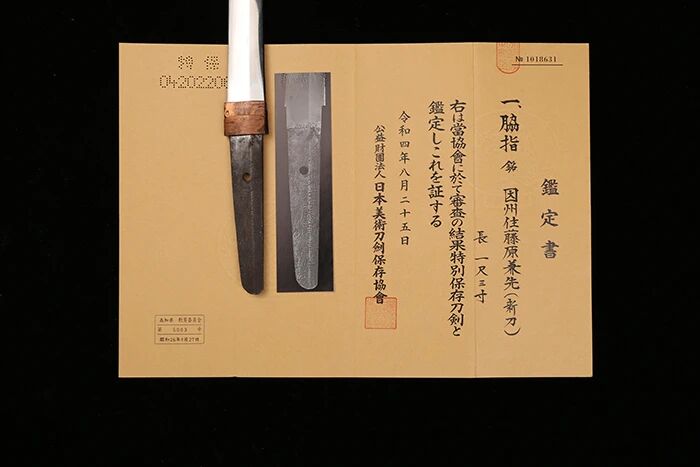 № 1018631
鑑定書
一、脇指 銘 因州住藤原兼先(新刀)
長 一尺三寸
右は當協會に於て審査の結果特別保存刀剣と
鑑定しこれを証する
令和四年八月二十五日
公益財團法人日本美術刀劍保存協會
特保
0420220
教育委員会
第 5003 号
昭和26年 月27日